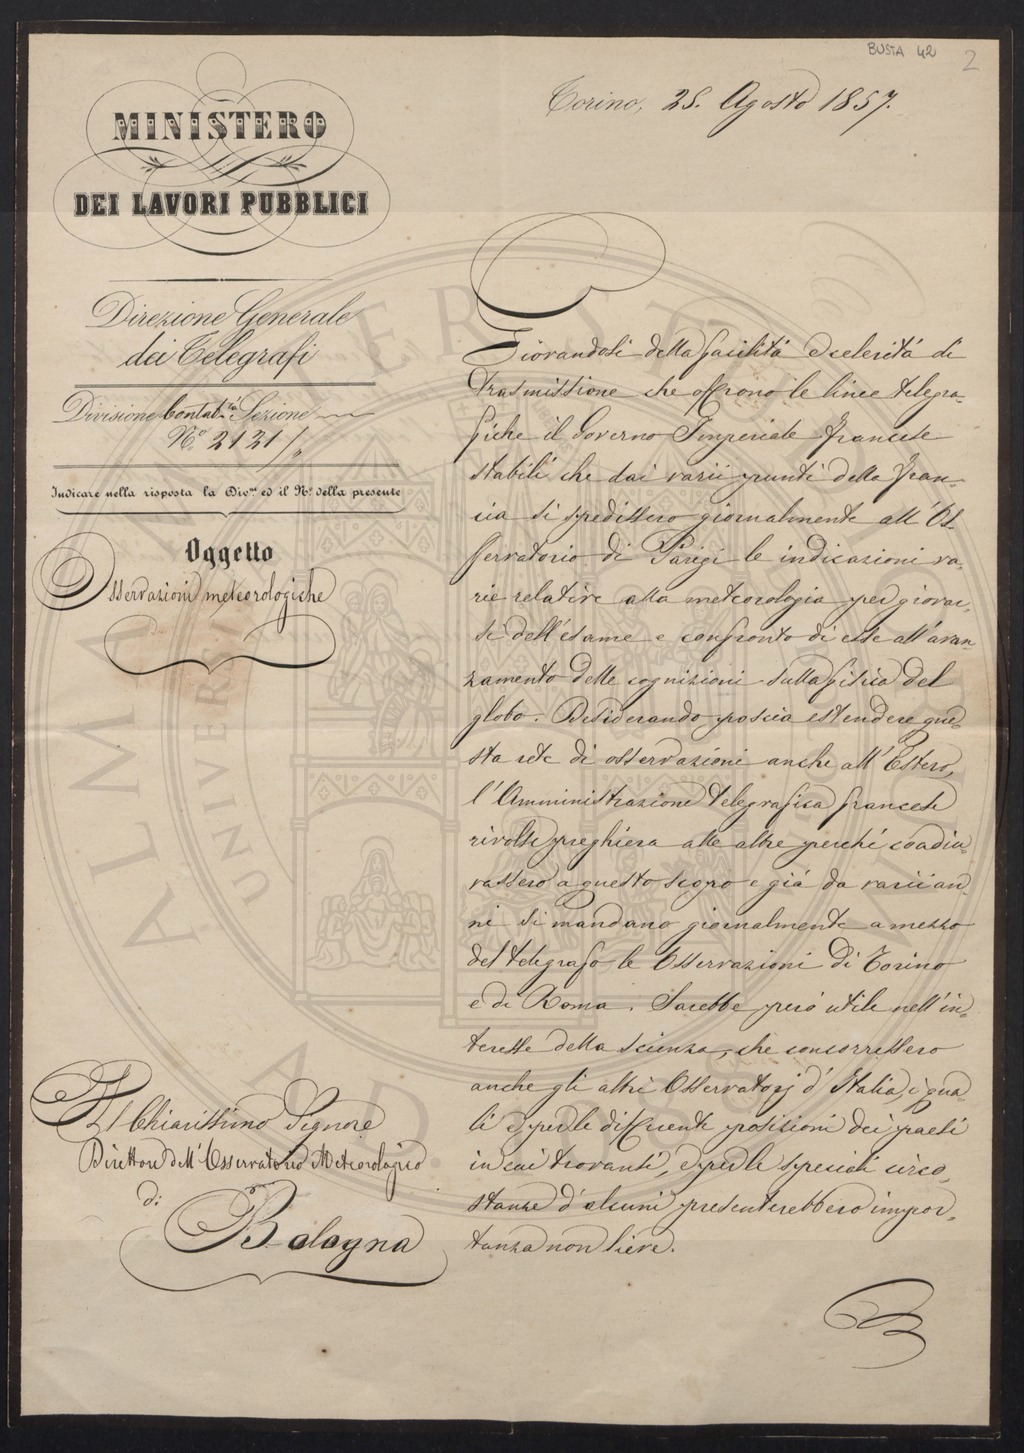 BUSTA 42 2
Torino, 28. Agosto 1857.
MINISTERO
DEI LAVORI PUBBLICI
Direzione Generale
dei Telegrafi
Divisione Contab.tà Sezione
N.o 2121/
Indicare nella risposta la Div.ne ed il N.o della presente
Oggetto
Osservazioni meteorologiche
Giovandosi della facilità e celerità di
trasmissione che offrono le linee telegra-
fiche il Governo Imperiale francese
stabilì che dai varii punti della Fran-
cia si spedissero giornalmente all'Os-
servatorio di Parigi le indicazioni va-
rie relative alla meteorologia per giovar-
si dell'esame e confronto di esse all'avan
zamento delle cognizioni sulla fisica del
globo. Desiderando poscia estendere que-
sta rete di osservazioni anche all'Estero,
l'Amministrazione telegrafica francese
rivolse preghiera alle altre perché coadiu-
vassero a questo scopo e già da varii an-
ni si mandano giornalmente a mezzo
del telegrafo le Osservazioni di Torino
e di Roma. Sarebbe però utile nell'in-
teresse della scienza, che concorressero
anche gli altri Osservatorj d'Italia, i qua-
li e per le differenti posizioni dei paesi
in cui trovansi, e per le speciali circo-
stanze d'alcuni presenterebbero impor-
tanza non lieve.
Il Chiarissimo Signore
Direttore dell'Osservatorio Meteorologico
di
Bologna
ALMA MATER STUDIORUM
UNIVERSITÀ
A.D. 1088